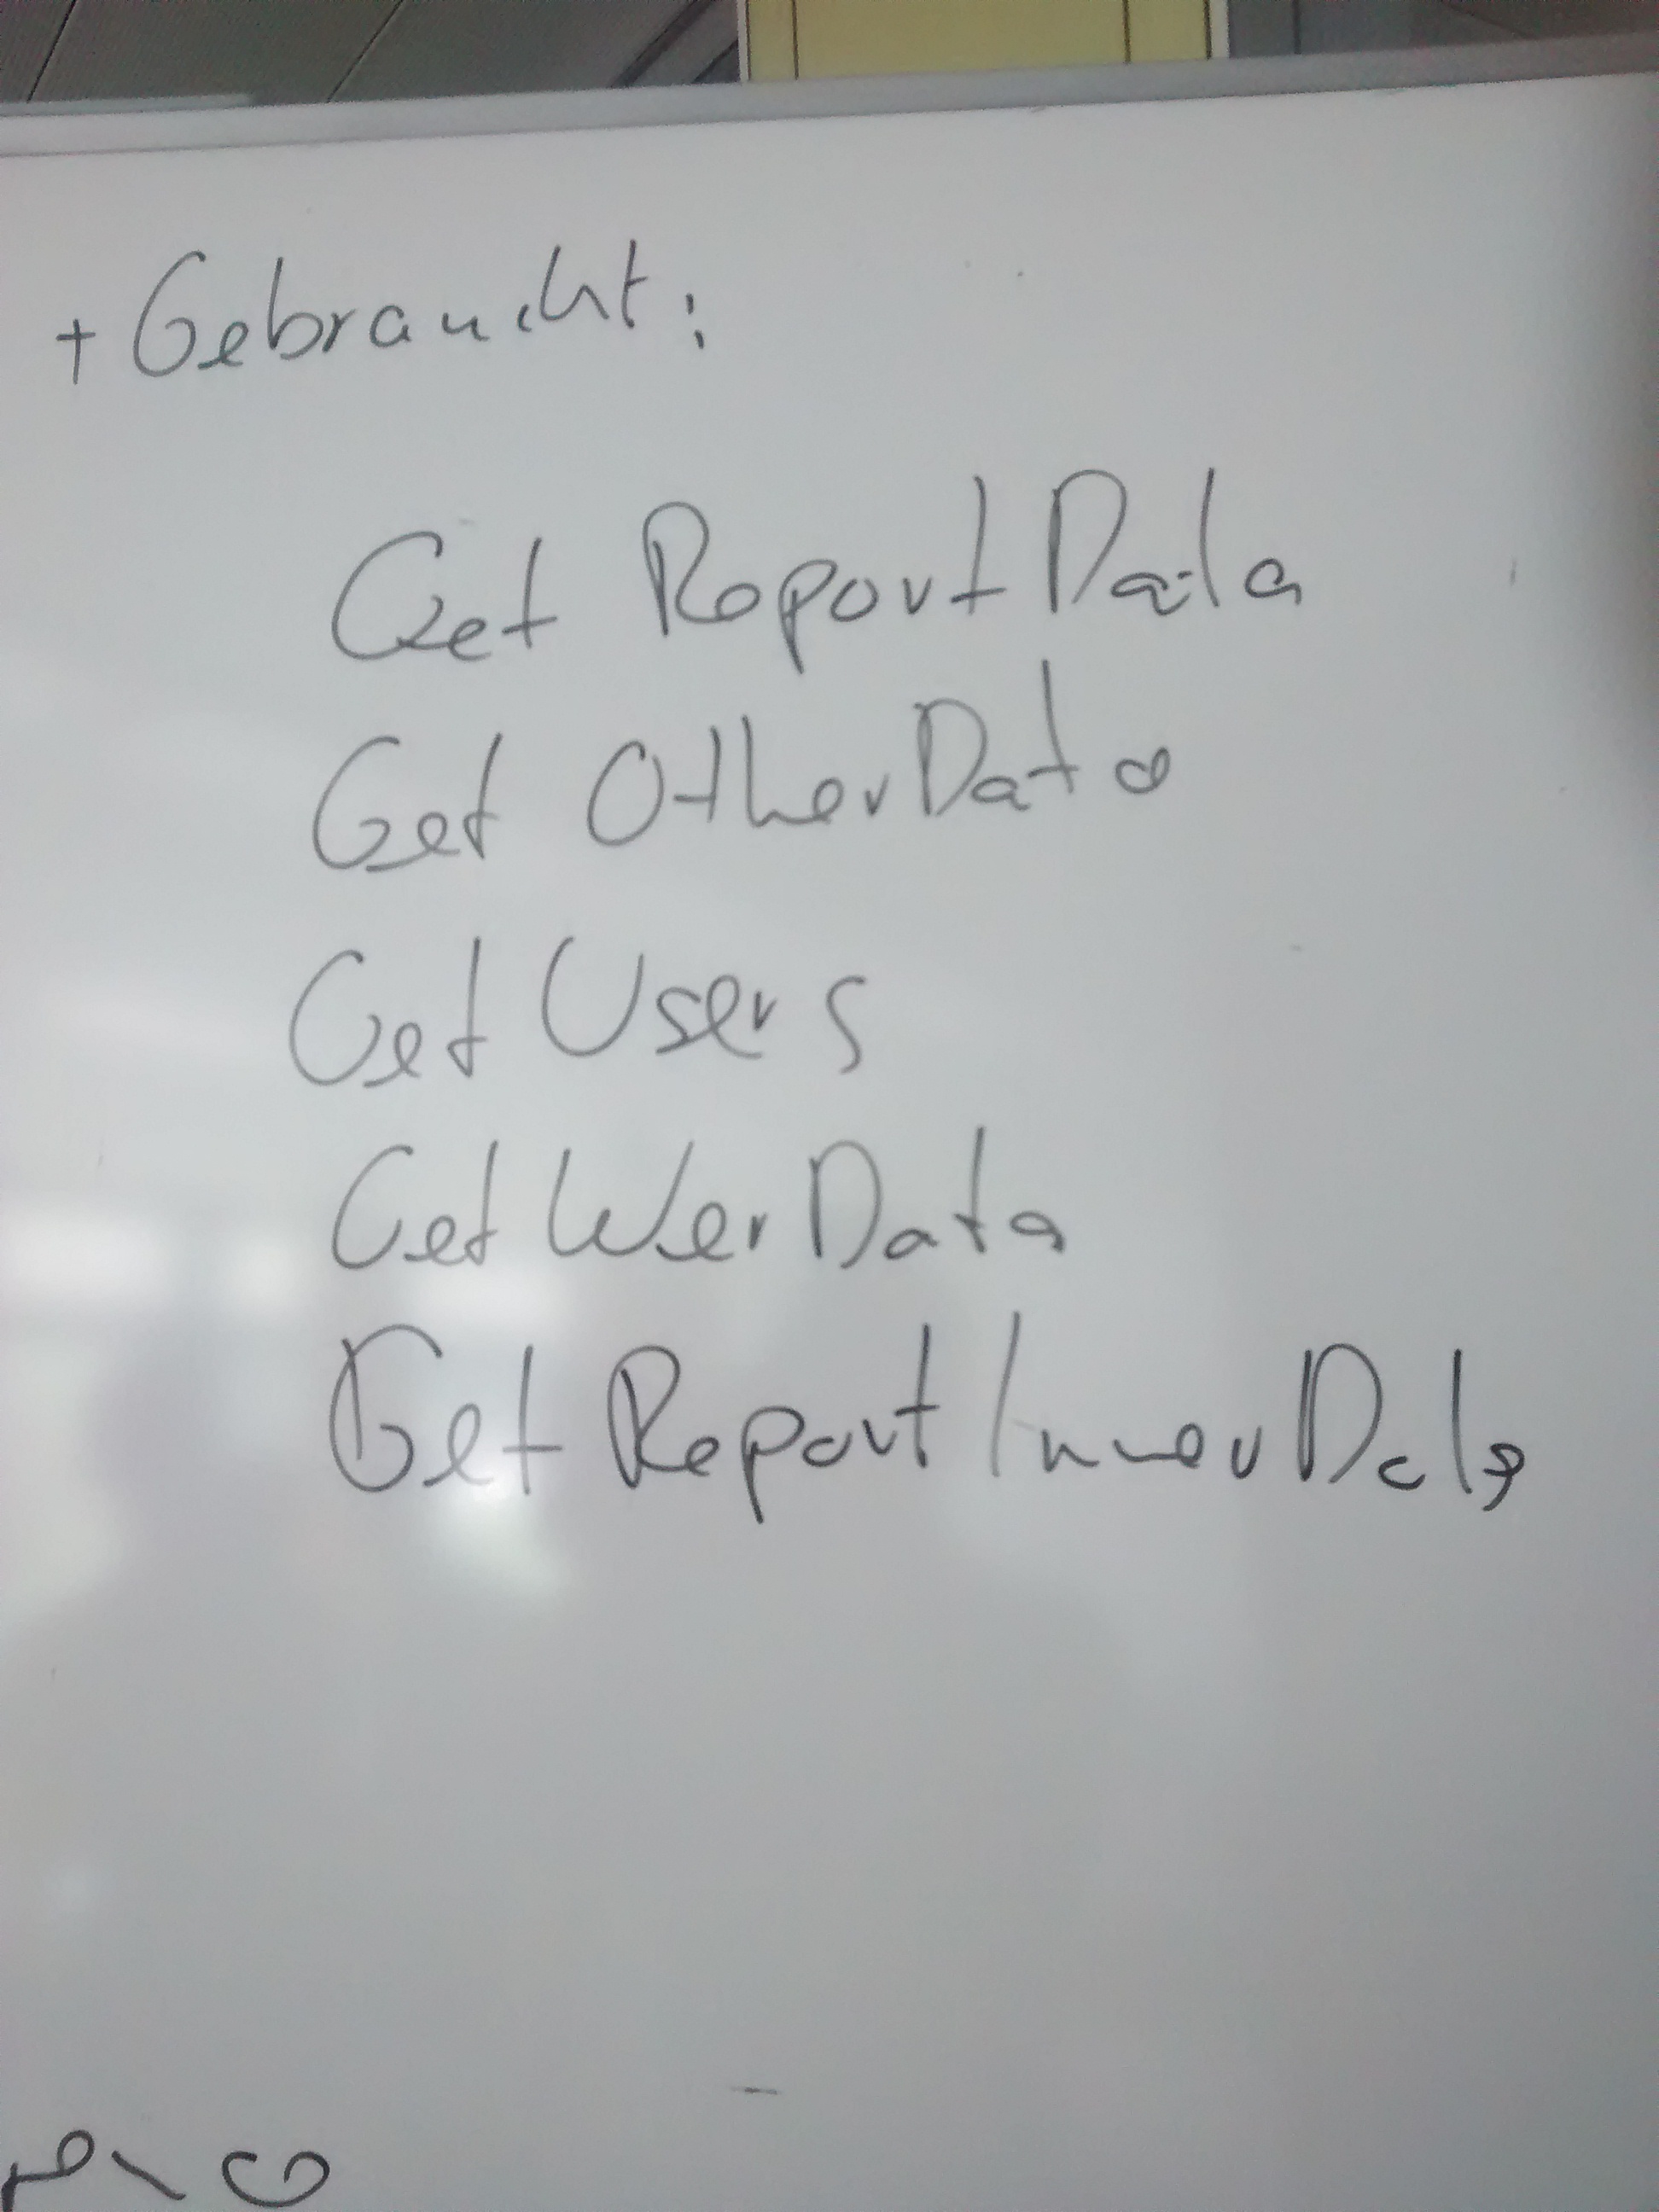 + Gebraucht:
Get ReportData
Get OtherData
Get Users
Get WerData
Get Report InnerData